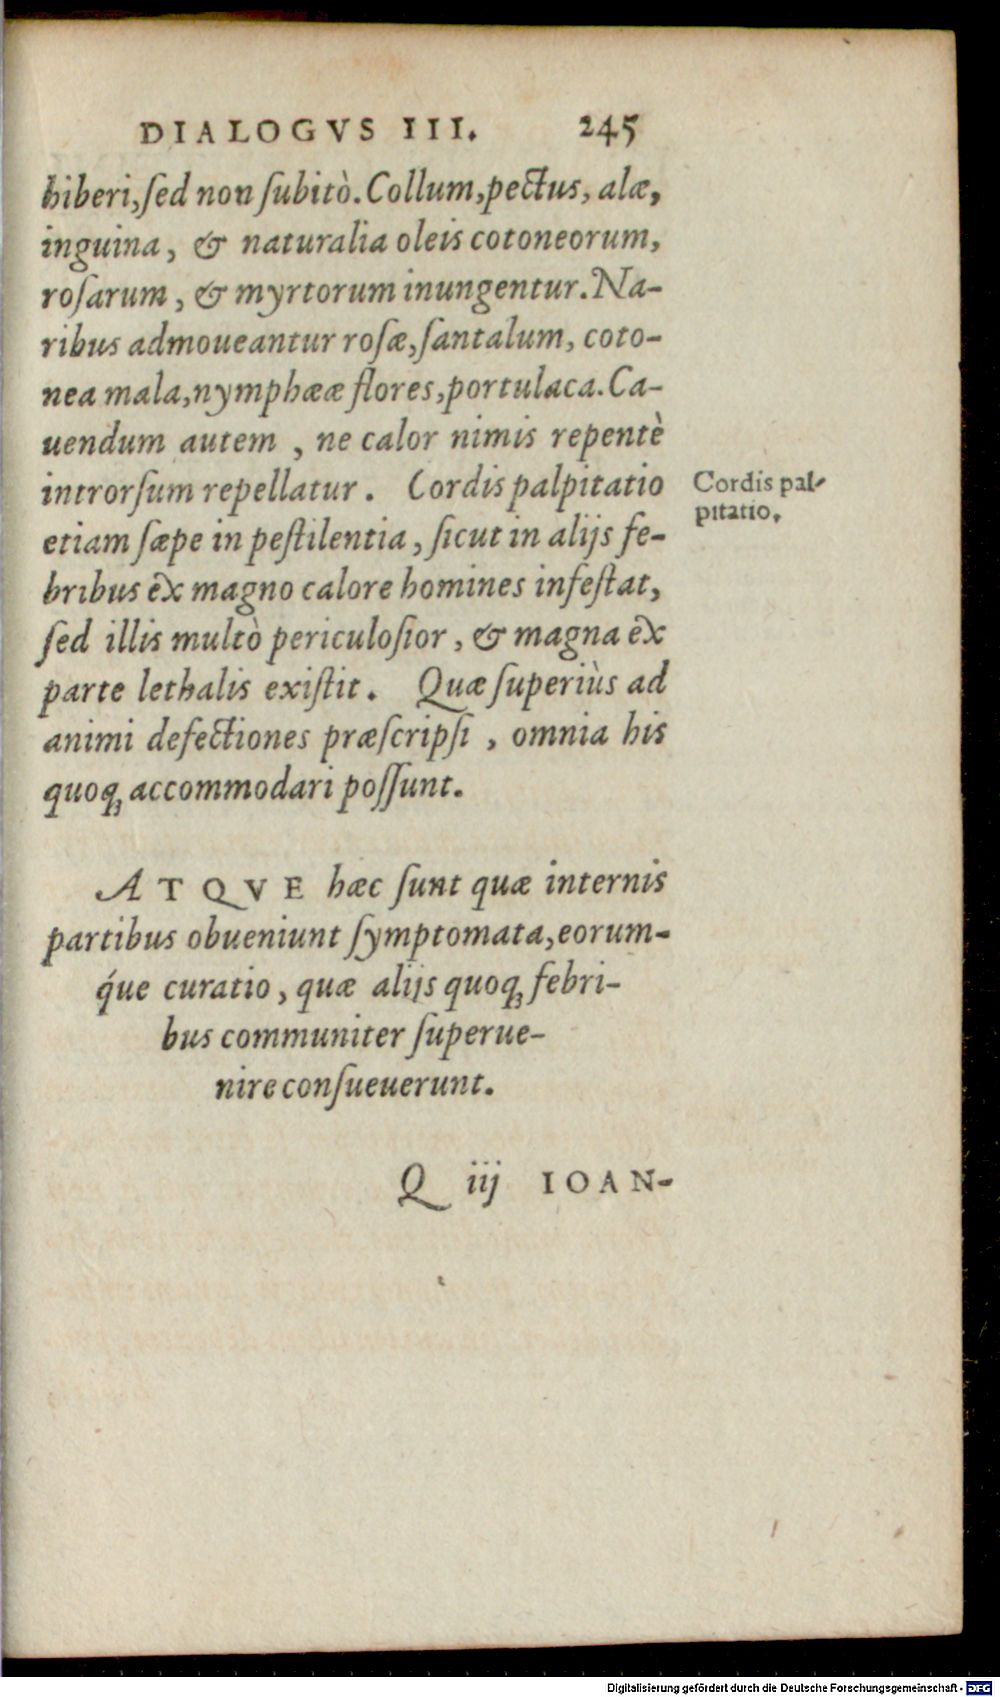 DIALOGVS III. 245
biberi, ſed non ſubitò. Collum, pectus, alæ,
inguina, & naturalia oleis cotoneorum,
roſarum, & myrtorum inungentur. Na-
ribus admoueantur roſæ, ſantalum, coto-
nea mala, nymphææ flores, portulaca. Ca-
uendum autem, ne calor nimis repentè
introrſum repellatur. Cordis palpitatio
etiam ſæpe in peſtilentia, ſicut in alijs fe-
bribus ex magno calore homines infeſtat,
ſed illis multò periculoſior, & magna ex
parte lethalis exiſtit. Quæ ſuperiùs ad
animi defectiones præſcripſi, omnia his
quoq; accommodari poſſunt.
Cordis pal-
pitatio.
ATQVE hæc ſunt quæ internis
partibus obueniunt ſymptomata, eorum-
q́ue curatio, quæ alijs quoq; febri-
bus communiter ſuperue-
nire conſueuerunt.
Q iij IOAN-
Digitalisierung gefördert durch die Deutsche Forschungsgemeinschaft - DFG